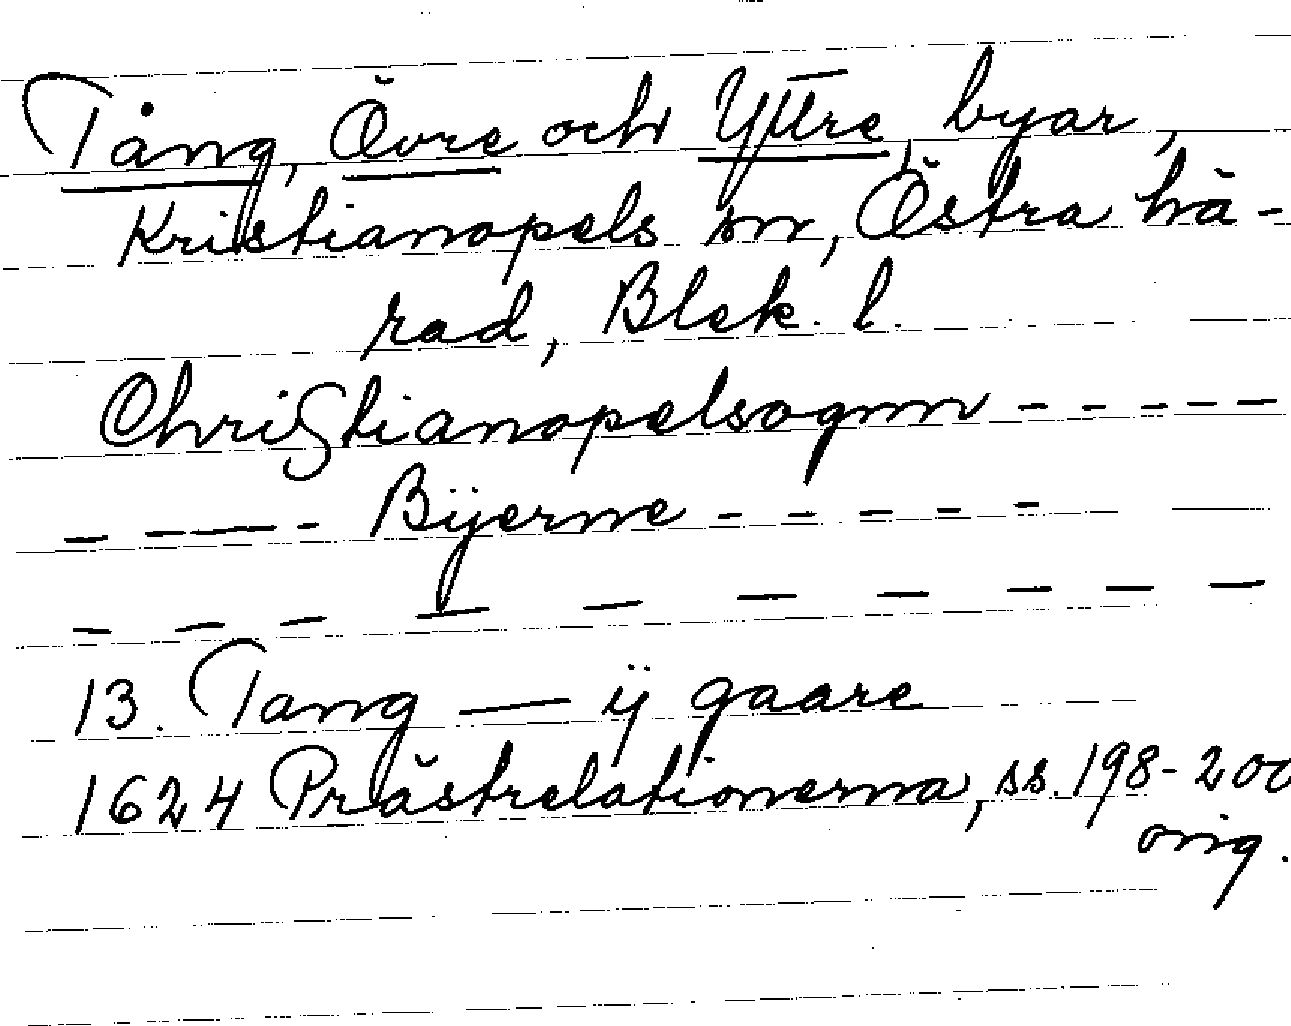 Tång, Övre och Yttre, byar,
Kristianopels sn, Östra hä-
rad, Blek. l.
Christianopelsognn - - - - -
- — — - Bÿerne - - - - -
- - - - - - - - - -
13. Tang — ÿ gaare
1624 Prästrelationerna, ss. 198-200
orig.